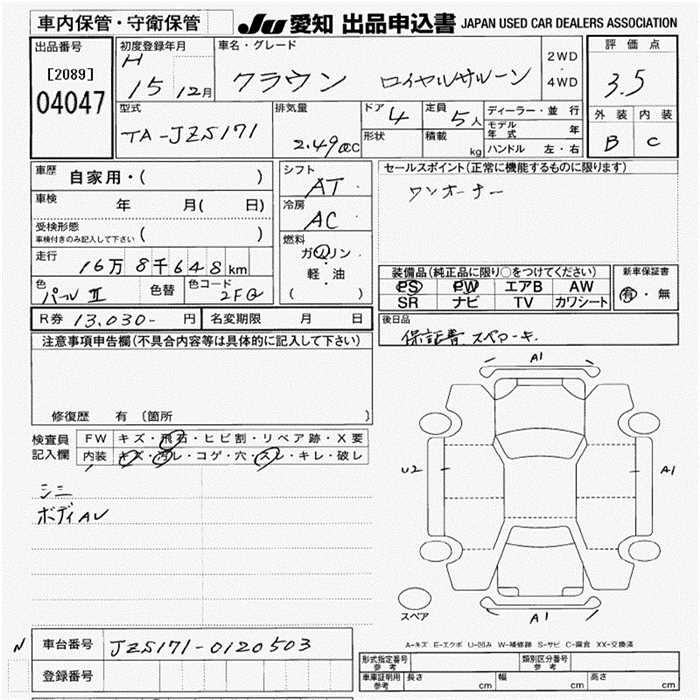 車内保管・守衛保管
JU 愛知 出品申込書 JAPAN USED CAR DEALERS ASSOCIATION
出品番号
[2089]
04047
初度登録年月
H
15 12月
車名・グレード
クラウン ロイヤルサルーン
2WD
・
4WD
評価点
3.5
外装 内装
B C
型式
TA-JZS171
排気量
2.490CC
ドア 4
形状
定員 5人
積載 kg
ディーラー・並行
モデル年式 年
ハンドル 左・右
車歴 自家用・( )
車検 年 月( 日)
受検形態
車検付きのみ記入して下さい ( )
走行 16万8千648km
色 パールII 色替 色コード 2FG
シフト
AT
冷房
AC
燃料
ガソリン
・
軽油
( )
セールスポイント(正常に機能するものに限ります)
ワンオーナー
装備品(純正品に限り○をつけてください)
PS PW エアB AW
SR ナビ TV カワシート
新車保証書
有・無
R券 13,030- 円 名変期限 月 日
後日品
保証書 スペアーキ.
注意事項申告欄(不具合内容等は具体的に記入して下さい)
修復歴 有 (箇所 )
検査員
記入欄
FW キズ・飛石・ヒビ割・リペア跡・X要
内装 キズ・汚レ・コゲ・穴・スレ・キレ・破レ
シミ
ボディAU
A1
U2
A1
A1
スペア
A-キズ E-エクボ U-凹み W-補修跡 S-サビ C-腐食 XX-交換済
N
車台番号 JZS171-0120503
登録番号
形式指定番号
参考
類別区分番号
参考
車庫証明用
参考
長さ cm 幅 cm 高さ cm